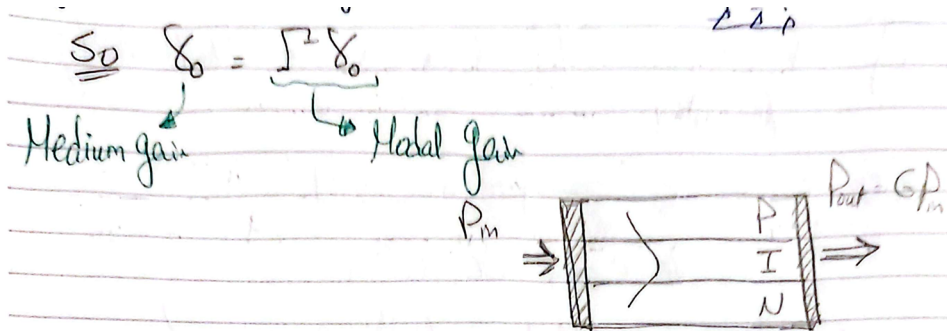 So γ₀ = Γ γ₀
Medium gain Modal gain
Pin
Pout = G Pin
P
I
N